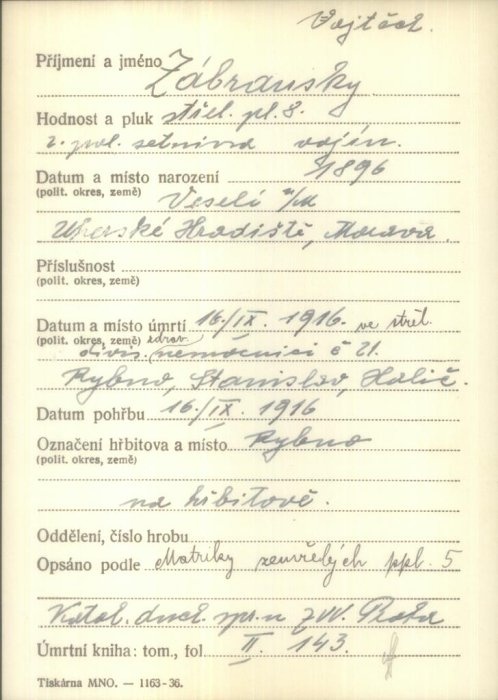 Vojtěch.
Příjmení a jméno Zábranský
Hodnost a pluk střel. pl. 8.
2. pol. setnina vojín.
Datum a místo narození 1896
(polit. okres, země) Veselí n/M
Uherské Hradiště, Morava.
Příslušnost
(polit. okres, země)
Datum a místo úmrtí 16./IX. 1916. ve střel.
(polit. okres, země) divis. zdrav. nemocnici č 21.
Rybno, Stanislav, Halič.
Datum pohřbu 16./IX. 1916
Označení hřbitova a místo Rybno
(polit. okres, země)
na hřbitově.
Oddělení, číslo hrobu
Opsáno podle Matriky zemřelých ppl. 5
Katol. duch. spr. ZVV. Praha
Úmrtní kniha: tom., fol II. 143.
Tiskárna MNO. — 1163-36.